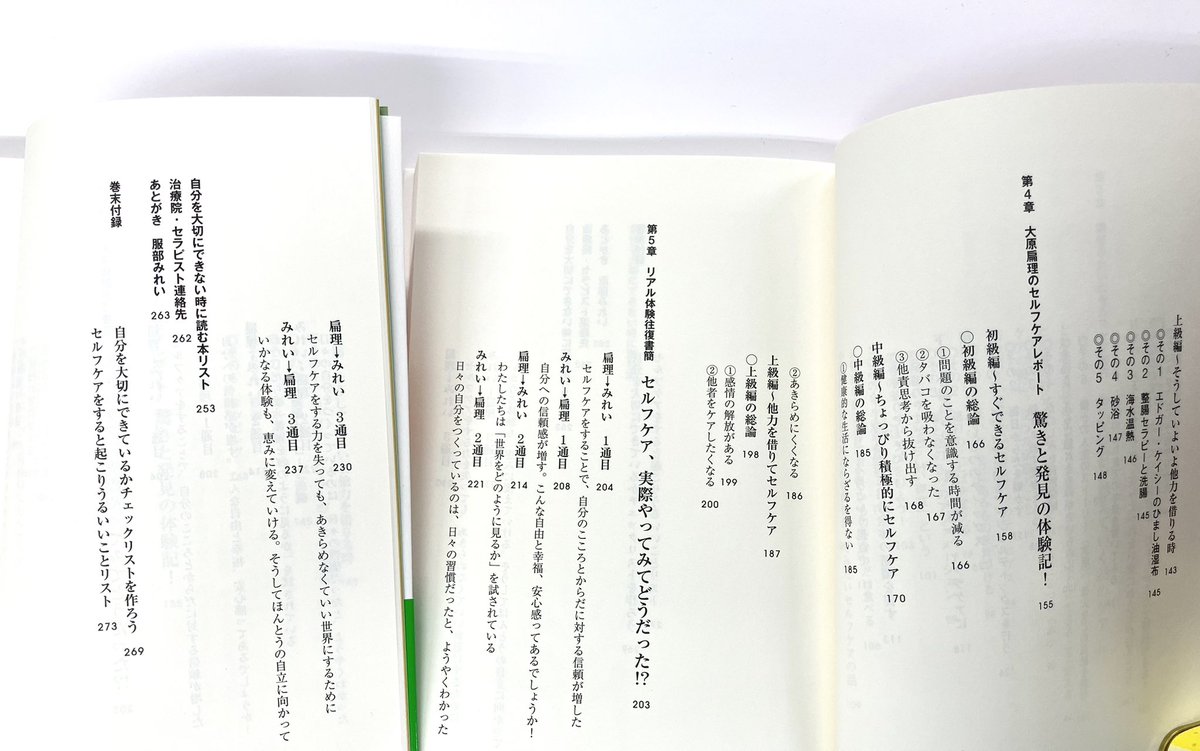 上級編～そうしていよいよ他力を借りる時 143
◎その1 エドガー・ケイシーのひまし油湿布 145
◎その2 整腸セラピーと洗腸 145
◎その3 海水温熱 146
◎その4 砂浴 147
◎その5 タッピング 148
第4章 大原扁理のセルフケアレポート 驚きと発見の体験記！ 155
初級編～すぐできるセルフケア 158
○初級編の総論 166
①問題のことを意識する時間が減る 166
②タバコを吸わなくなった 167
③他責思考から抜け出す 168
中級編～ちょっぴり積極的にセルフケア 170
○中級編の総論 185
①健康的な生活にならざるを得ない 185
②あきらめにくくなる 186
上級編～他力を借りてセルフケア 187
○上級編の総論 198
①感情の解放がある 199
②他者をケアしたくなる 200
第5章 リアル体験往復書簡 セルフケア、実際やってみてどうだった!? 203
扁理→みれい 1通目 204
セルフケアをすることで、自分のこころとからだに対する信頼が増した
みれい→扁理 1通目 208
自分への信頼感が増す。こんな自由と幸福、安心感ってあるでしょうか！
扁理→みれい 2通目 214
わたしたちは「世界をどのように見るか」を試されている
みれい→扁理 2通目 221
日々の自分をつくっているのは、日々の習慣だったと、ようやくわかった
扁理→みれい 3通目 230
セルフケアをする力を失っても、あきらめなくていい世界にするために
みれい→扁理 3通目 237
いかなる体験も、恵みに変えていける。そうしてほんとうの自立に向かって
自分を大切にできない時に読む本リスト 253
治療院・セラピスト連絡先 262
あとがき 服部みれい 263
巻末付録
自分を大切にできているかチェックリストを作ろう 269
セルフケアをすると起こりうるいいことリスト 273